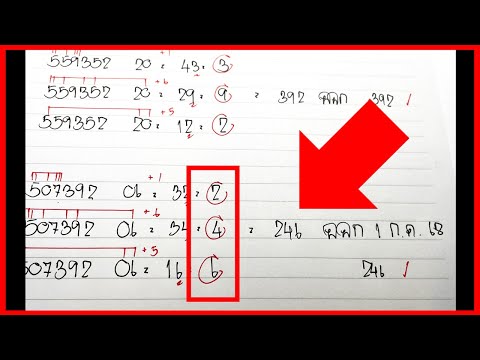 +1
559352 20 = 43 = 3
+6
559352 20 = 29 = 9 = 392 ออก 392 /
559352 20 = 12 = 2
+1
507392 06 = 32 = 2
+6
507392 06 = 34 = 4 = 246 ออก 1 ก.ค. 68
+5
507392 06 = 16 = 6 246 /